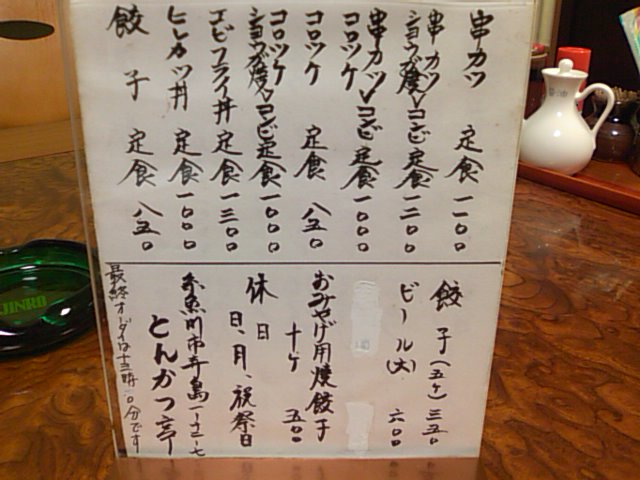 串カツ 定食 一一〇〇
串カツ
ショウガ焼 コンビ定食 一二〇〇
串カツ
コロッケ コンビ定食 一〇〇〇
コロッケ 定食 八五〇
コロッケ
ショウガ焼 コンビ定食 一〇〇〇
エビフライ丼 定食 一三〇〇
ヒレカツ丼 定食 一〇〇〇
餃子 定食 八五〇
餃子(五ケ) 三五〇
ビール(大) 六〇〇
おみやげ用焼餃子
十ケ 五〇〇
休日
日、月、祝祭日
糸魚川市
とんかつ亭
最終オーダーは十三時 〇分です
JINRO